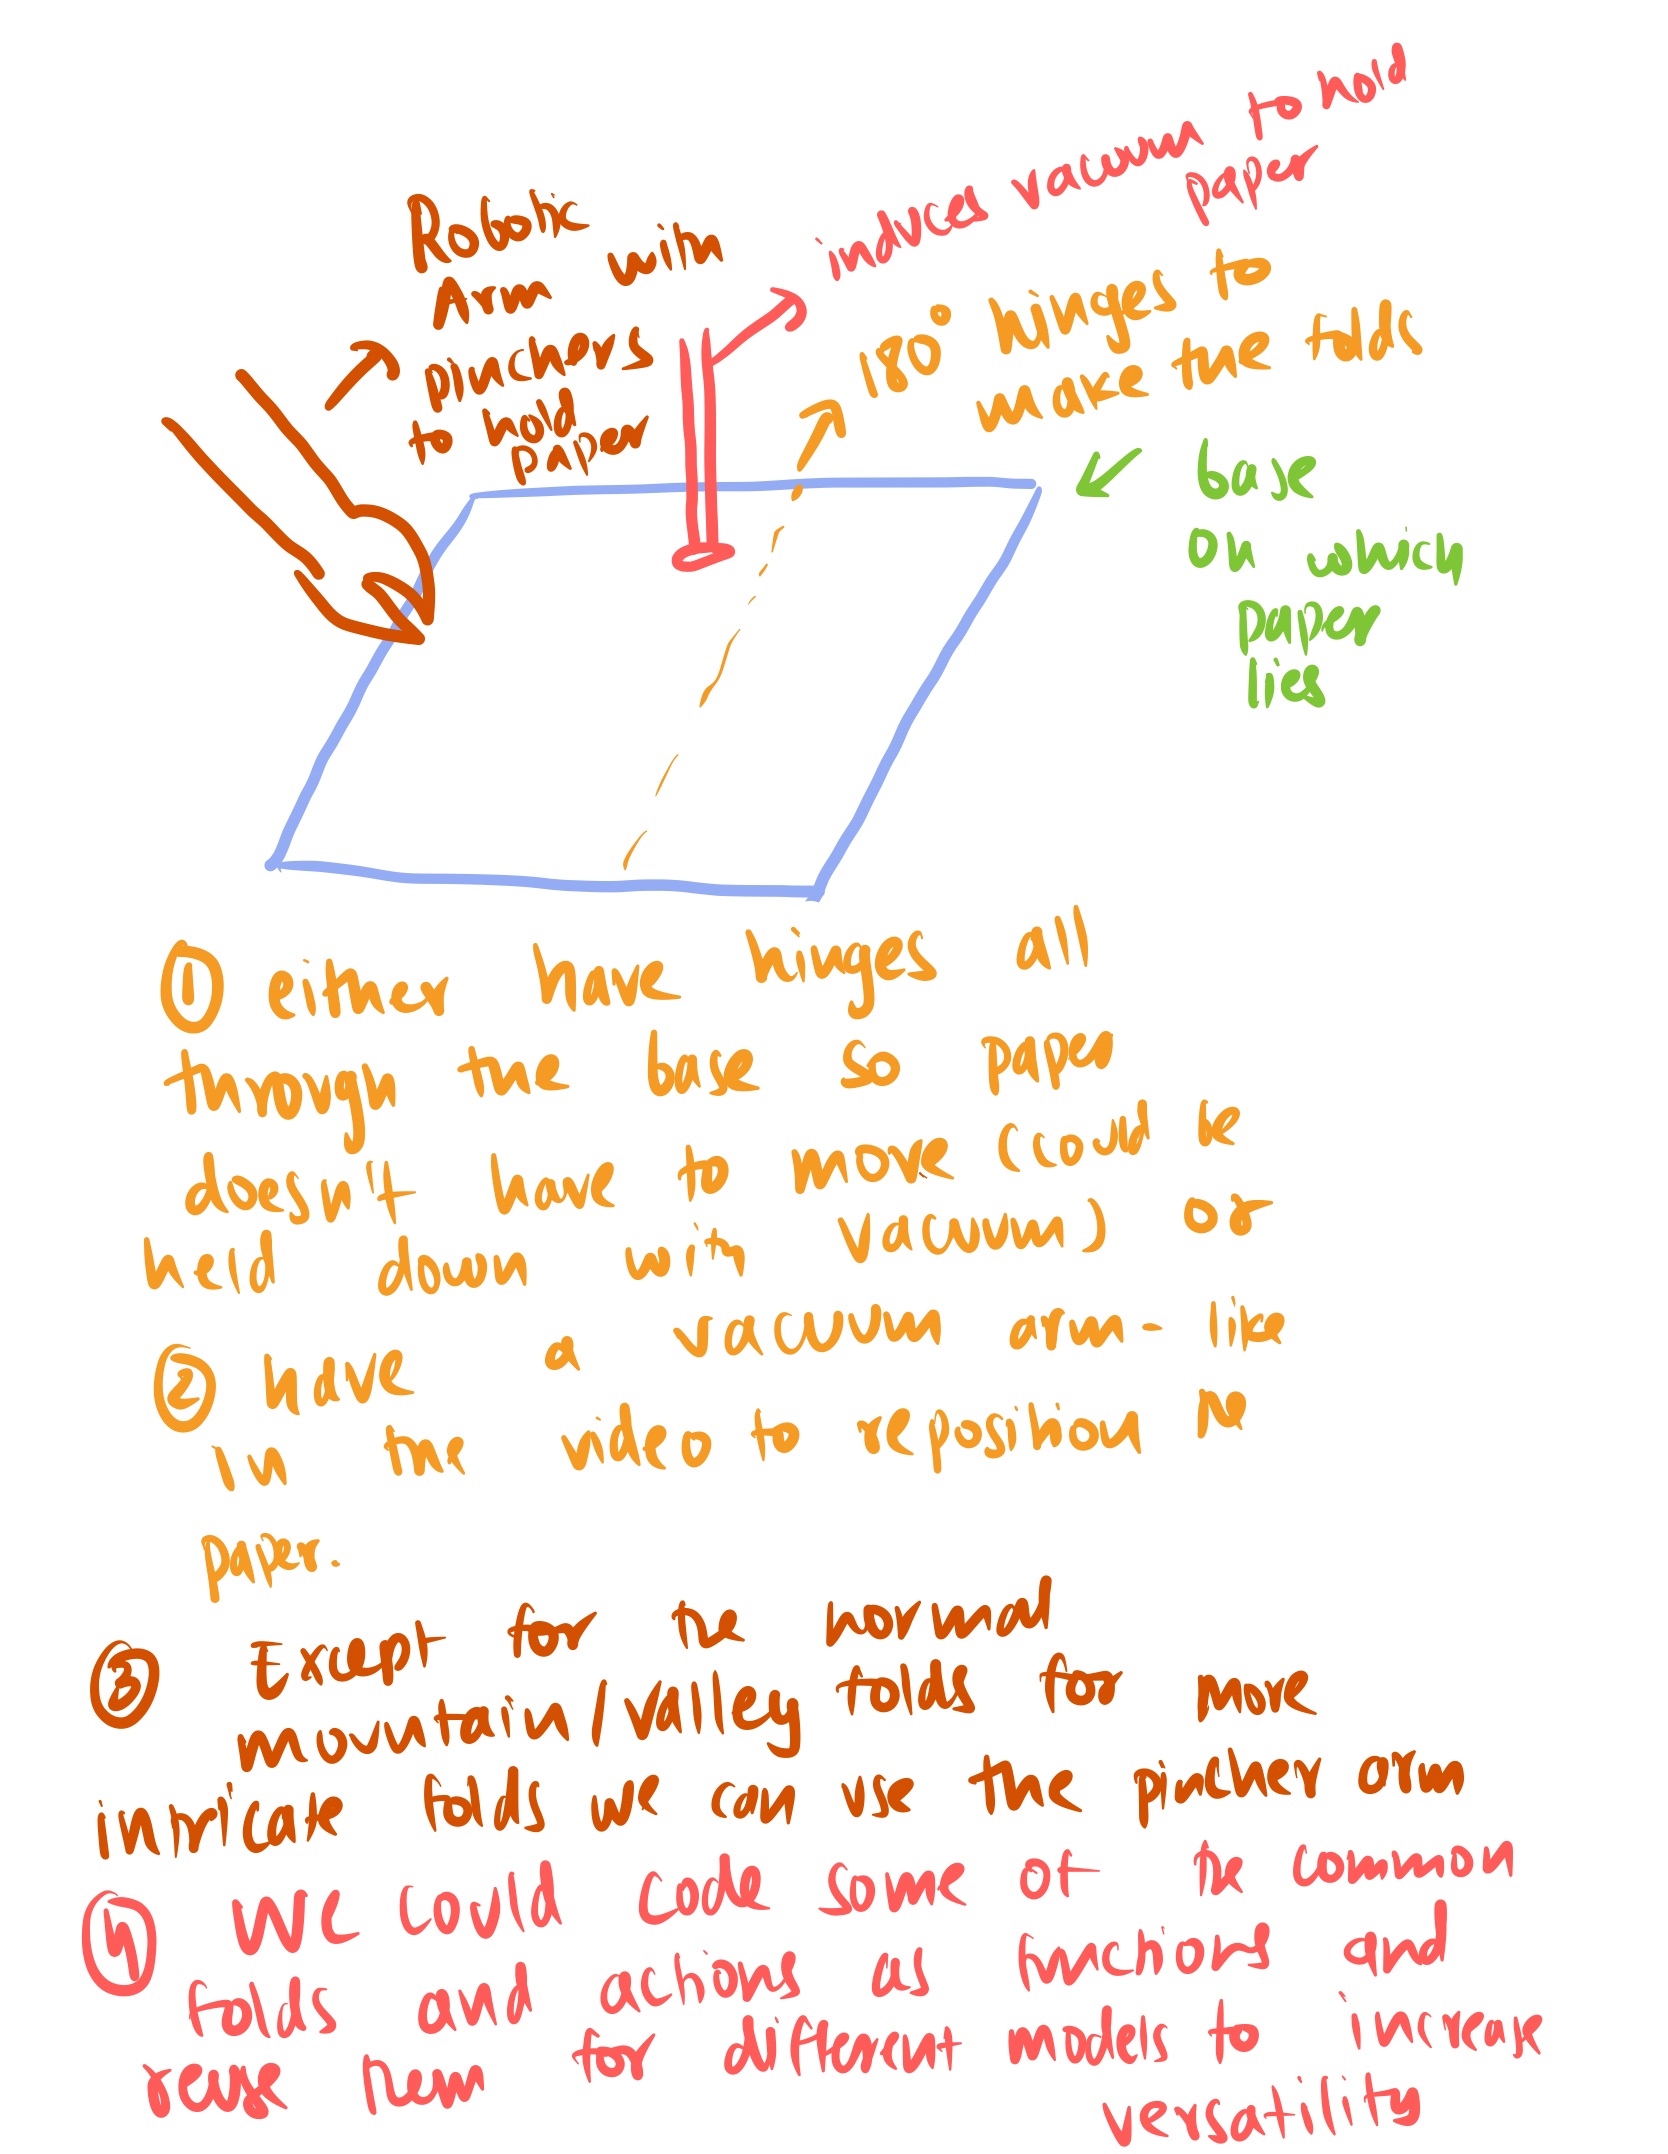 Robotic
Arm with
pinchers
to hold
paper
induces vacuum to hold
paper
180° hinges to
make the folds
base
on which
paper
lies
① either have hinges all
through the base so paper
doesn't have to move (could be
held down with vacuum) or
② have a vacuum arm - like
in the video to reposition the
paper.
③ Except for the normal
mountain/valley folds for more
intricate folds we can use the pincher arm
④ We could code some of the common
folds and actions as functions and
reuse them for different models to increase
versatility